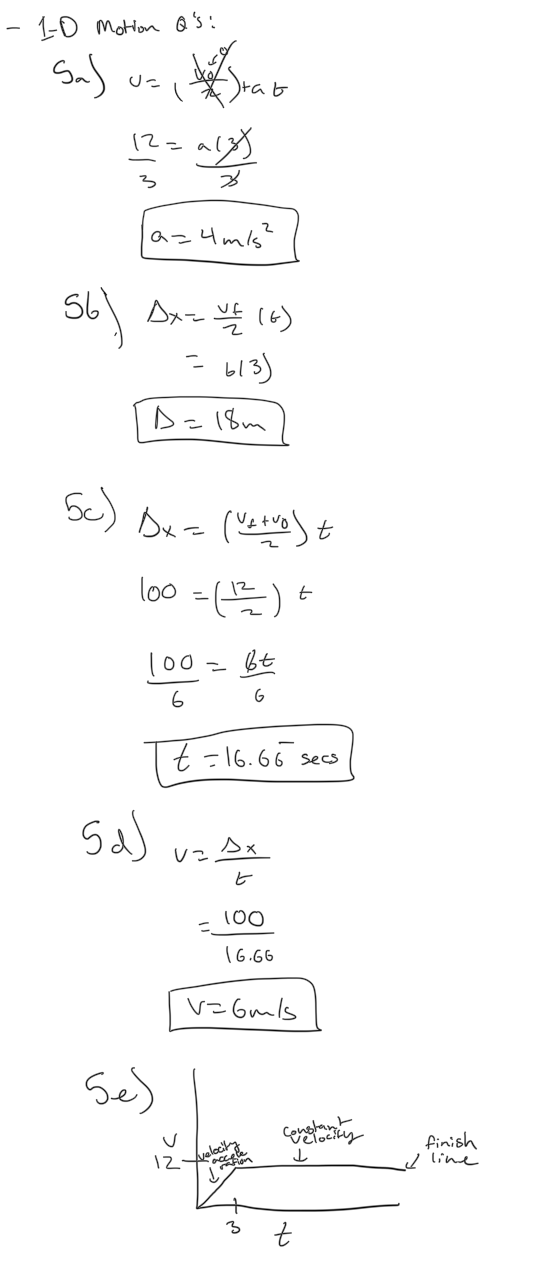 - 1-D Motion Q's:
5a) v = (v₀/2)→0 + at
12/3 = a(3)/3
a = 4m/s²
5b) Δx = vf/2 (t)
= 6(3)
Δ = 18m
5c) Δx = (vf+v0/2) t
100 = (12/2) t
100/6 = 6t/6
t = 16.66̄ secs
5d) v = Δx/t
= 100/16.66
V = 6m/s
5e)
v
12
velocity acceleration
constant velocity
finish line
3
t